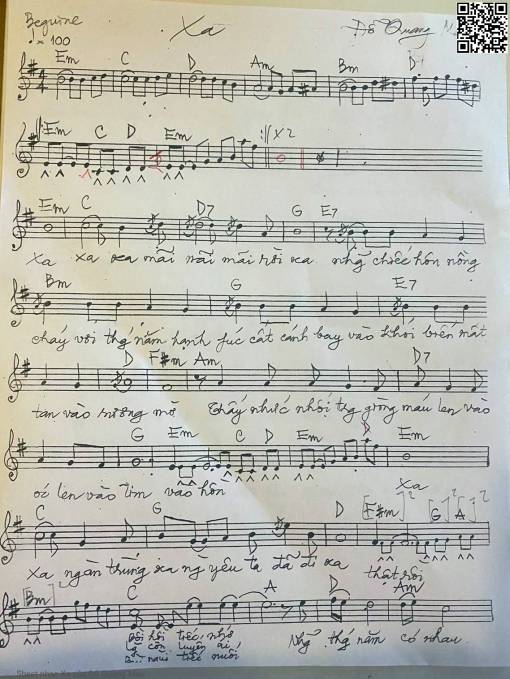 Beguine Xa Đỗ Quang
♩ = 100
Em C D Am Bm D
4/4
Em C D Em :// x2
Em C D7 G E7
Xa xa xa mãi mãi mãi rồi xa những chiếc hôn nồng
Bm G E7
cháy với thg năm hạnh fúc cất cánh bay vào khói biến mất
D F#m Am D7
tan vào sương mờ Thấy nhức nhối tg giòng máu len vào
G Em C D Em D Em
óc lên vào tim vào hồn Xa
C G D [F#m]² [G]² [A]²
Xa ngàn trùng xa ng yêu ta đã đi xa thật rồi
[Bm]² C A D Am
Bồi hồi tiếc nhớ Nhg thg năm có nhau
còn luyến ái
tiếc nuối